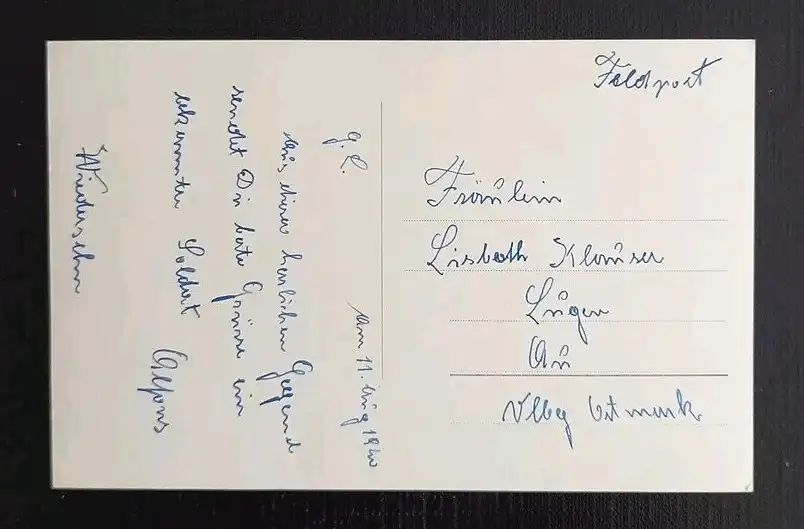 Feldpost
Fräulein
Lisbeth Klauser
Au
Vlbg Ostmark
Am 11. Aug 1940
G. L.
Aus einer herrlichen Gegend
sendet Dir beste Grüsse ein
bekannter Soldat Alfons
Wiedersehn